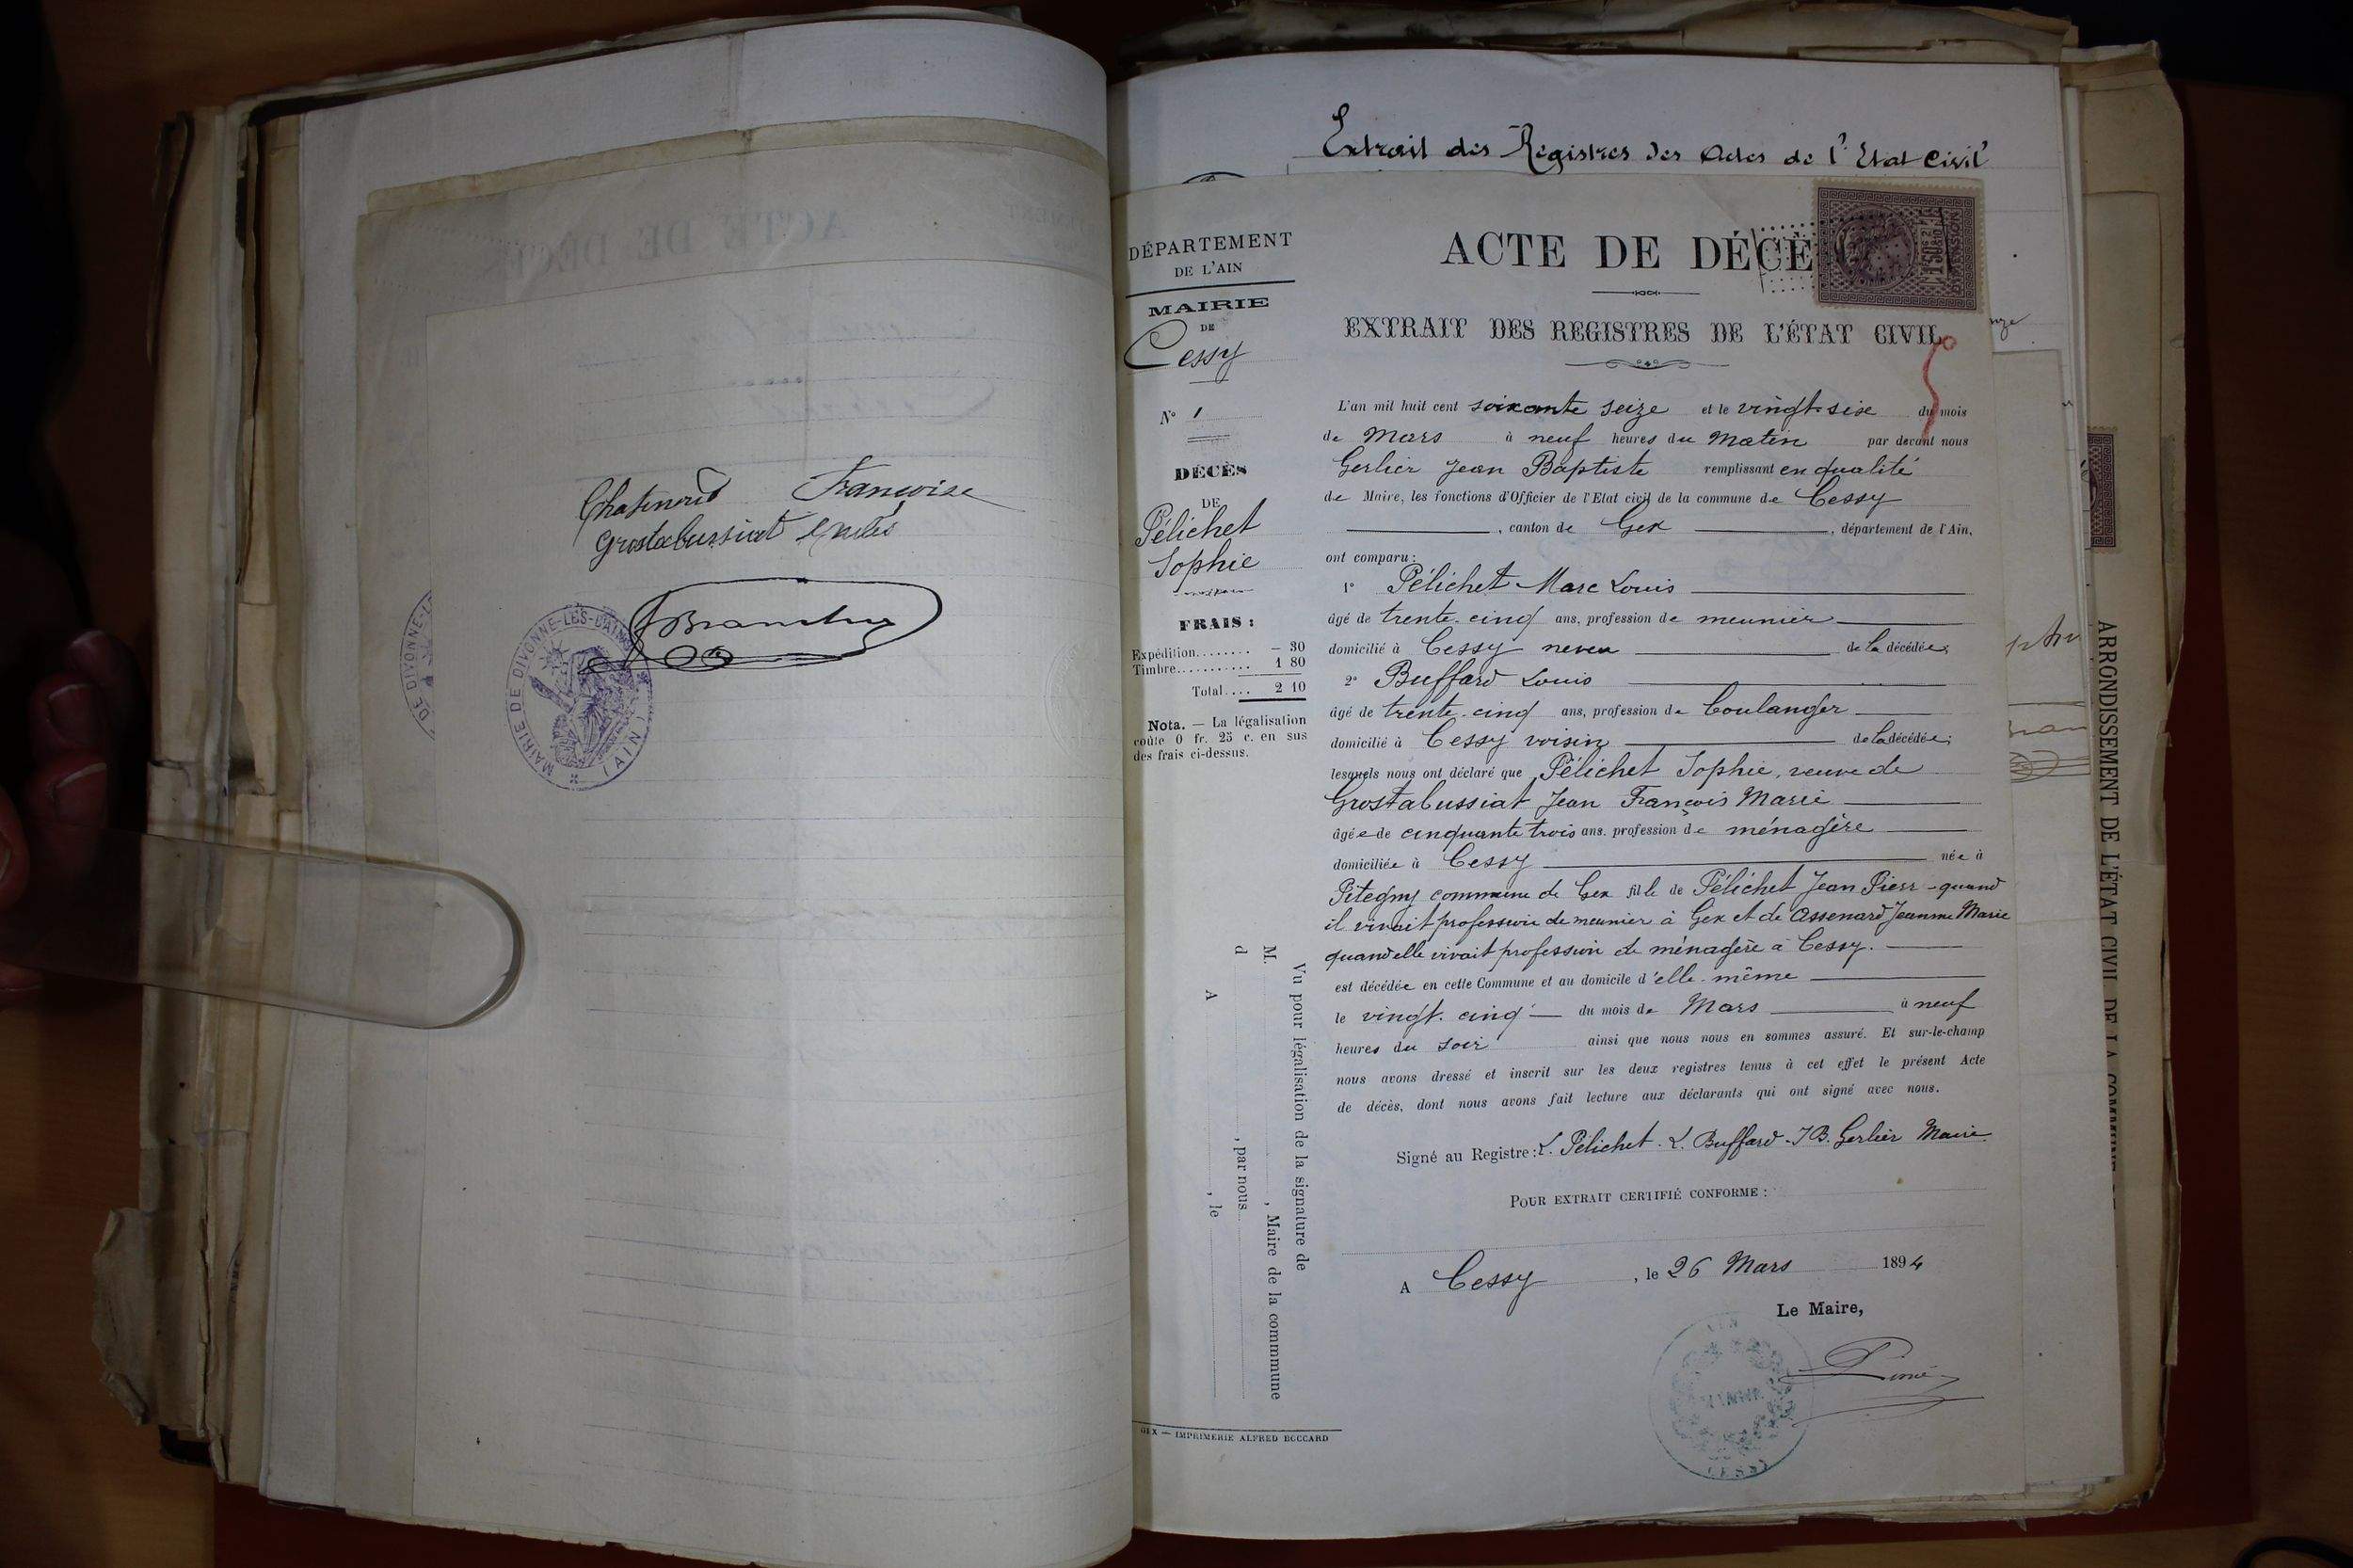 Françoise
Grostabussiat
MAIRIE DE DIVONNE-LES-BAINS
(AIN)
DE DIVONNE-L
Extrait des Registres des Actes de l'Etat Civil
DÉPARTEMENT
DE L'AIN
MAIRIE
DE
Cessy
N° 1
DÉCÈS
DE
Pélichet
Sophie
FRAIS :
Expédition........ – 30
Timbre........... 1 80
Total.... 2 10
Nota. — La légalisation
coûte 0 fr. 25 c. en sus
des frais ci-dessus.
Vu pour légalisation de la signature de
M. , Maire de la commmune
d , par nous
A , le
GEX — IMPRIMERIE ALFRED BOCCARD
ACTE DE DÉCÈ
EXTRAIT DES REGISTRES DE L'ÉTAT CIVIL
L'an mil huit cent soixante seize et le vingt-six du mois
de Mars à neuf heures du Matin par devant nous
Gerlier Jean Baptiste remplissant en qualité
de Maire, les fonctions d'Officier de l'Etat civil de la commune de Cessy
, canton de Gex , département de l'Ain,
ont comparu :
1° Pélichet Marc Louis
âgé de trente-cinq ans, profession de meunier
domicilié à Cessy neveu de la décédée;
2° Buffard Louis
âgé de trente-cinq ans, profession de boulanger
domicilié à Cessy voisin de la décédée;
lesquels nous ont déclaré que Pélichet Sophie, veuve de
Grostabussiat Jean François Marie
âgée de cinquante trois ans. profession de ménagère
domiciliée à Cessy née à
Pitegny commune de Gex fille de Pélichet Jean Pierr - quand
il vivait profession de meunier à Gex et de Assenard Jeanne Marie
quand elle vivait profession de ménagère à Cessy.
est décédée en cette Commune et au domicile d'elle-même
le vingt-cinq du mois de Mars à neuf
heures du soir ainsi que nous nous en sommes assuré. Et sur-le-champ
nous avons dressé et inscrit sur les deux registres tenus à cet effet le présent Acte
de décès, dont nous avons fait lecture aux déclarants qui ont signé avec nous.
Signé au Registre : L. Pélichet. L. Buffard. J B. Gerlier Maire
POUR EXTRAIT CERTIFIÉ CONFORME :
A Cessy , le 26 Mars 1894
Le Maire,
MAIRIE
CESSY
ARRONDISSEMENT DE L'ÉTAT CIVIL DE LA COMMUNE